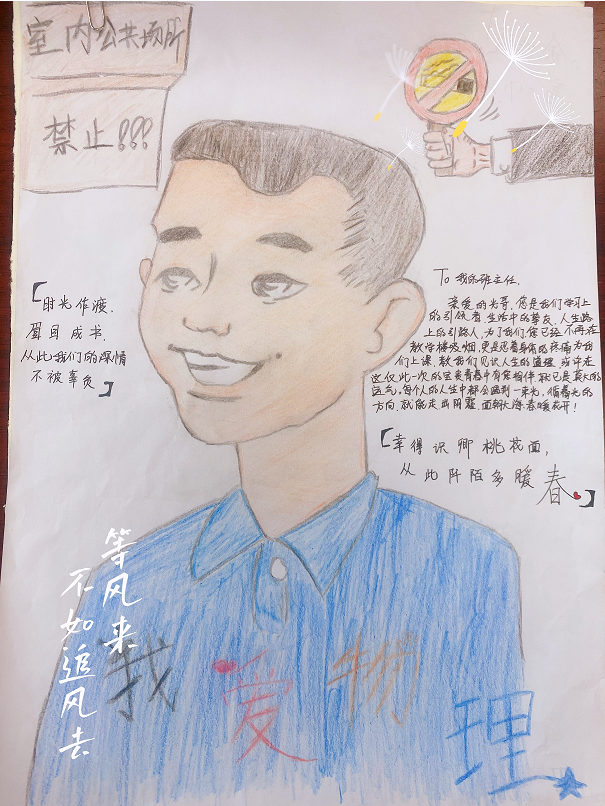 室内公共场所
禁止！！！
【时光作渡，
眉目成书，
从此我们的深情
不被辜负】
To 我的班主任.
亲爱的光哥，您是我们学习上
的引领者，生活中的挚友，人生路
上的引路人，为了我们，您已经不再在
教学楼吸烟，更是忍着身体的疼痛为我
们上课，教我们见识人生的道理 或许在
这仅此一次的宝贵青春中有您相伴就已是莫大的
运气，每个人的人生中都会遇到一束光，循着光的
方向就能走出阴霾，面朝大海，春暖花开！
【幸得识卿桃花面，
从此阡陌多暖春】
等风来
不如追风去
我爱物理